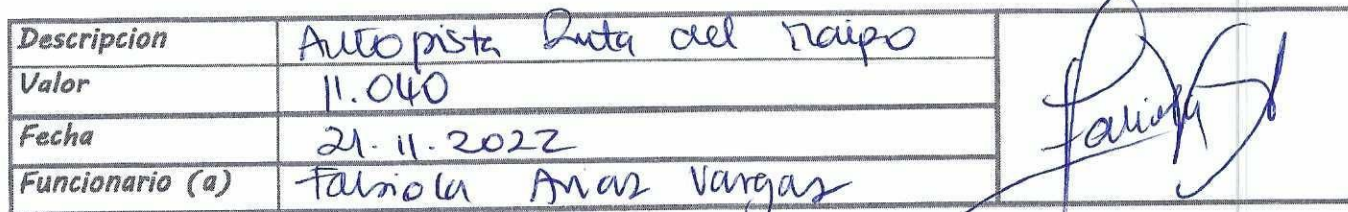 Descripcion Autopista Ruta del Maipo
Valor 11.040
Fecha 21.11.2022
Funcionario (a) Fabiola Arias Vargas
Fabiola